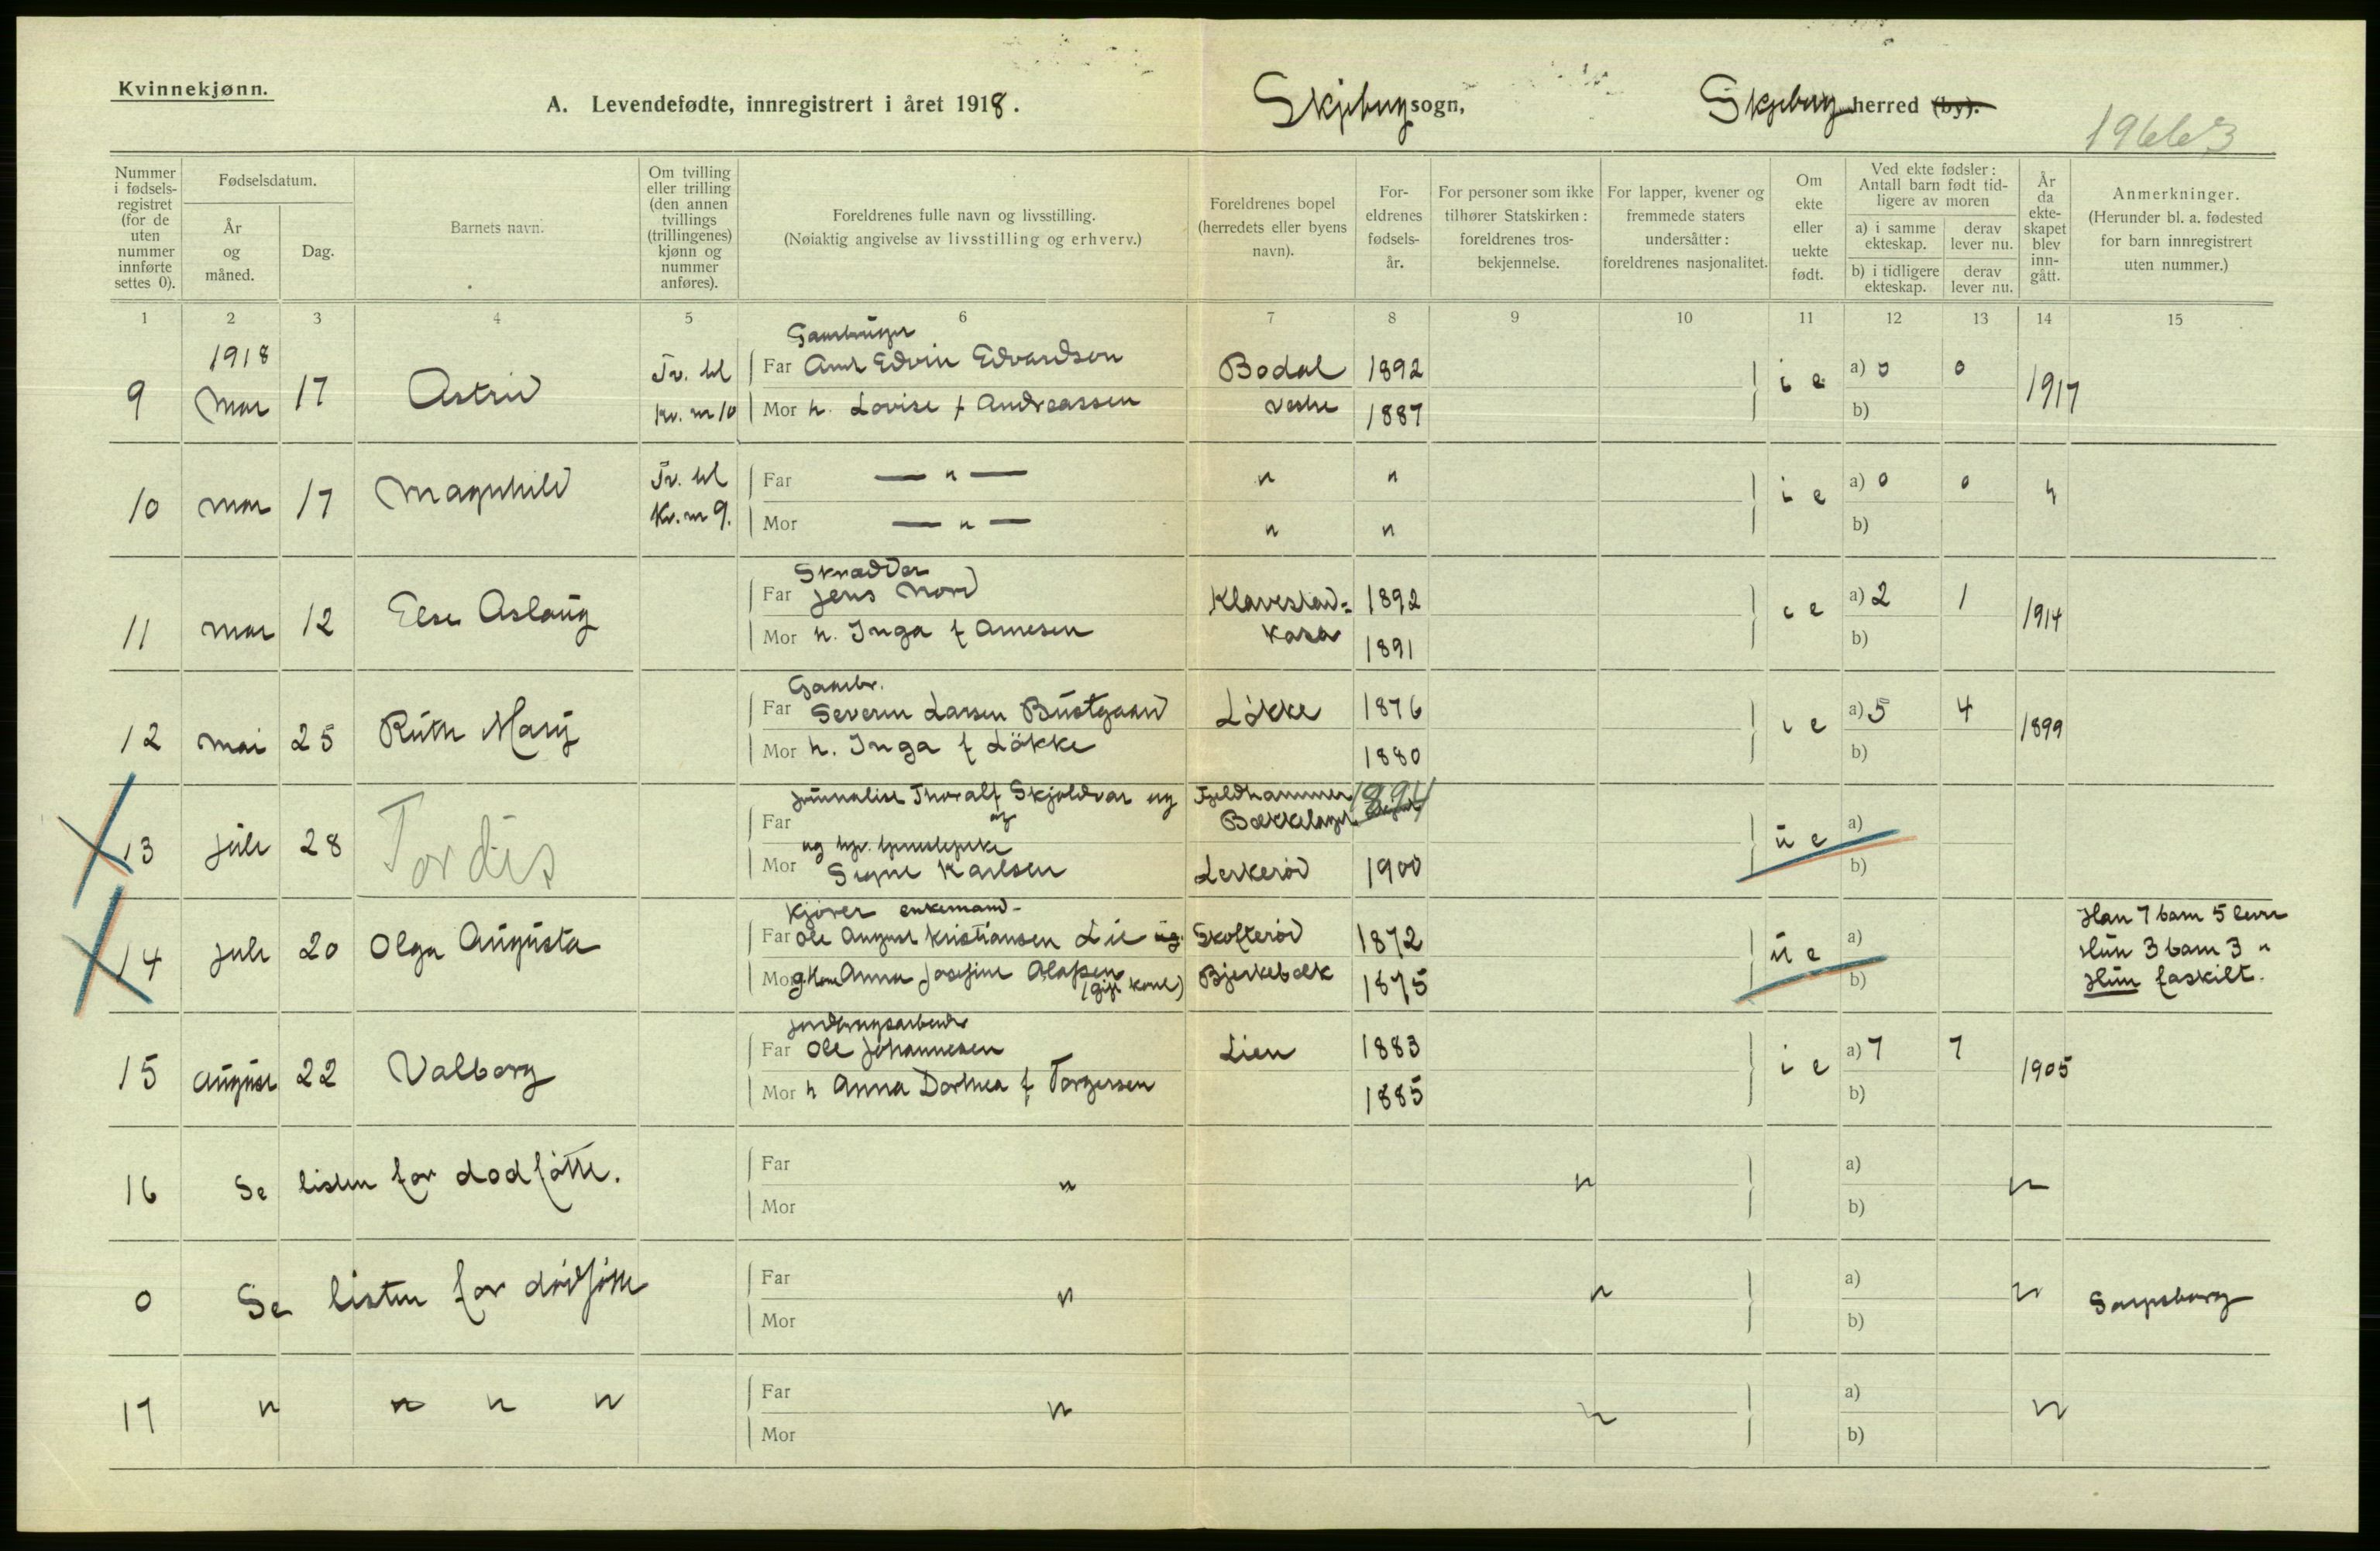 Kvinnekjønn.
A. Levendefødte, innregistrert i året 1918.
Skjeberg sogn,
Skjeberg herred (by).
19663
Nummer i fødsels-registret (for de uten nummer innførte settes 0).
Fødselsdatum.
År og måned.
Dag.
Barnets navn.
Om tvilling eller trilling (den annen tvillings (trillingenes) kjønn og nummer anføres).
Foreldrenes fulle navn og livsstilling.
(Nøiaktig angivelse av livsstilling og erhverv.)
Foreldrenes bopel (herredets eller byens navn).
For-eldrenes fødsels-år.
For personer som ikke tilhører Statskirken: foreldrenes tros-bekjennelse.
For lapper, kvener og fremmede staters undersåtter: foreldrenes nasjonalitet.
Om ekte eller uekte født.
Ved ekte fødsler: Antall barn født tid-ligere av moren
a) i samme ekteskap.
derav lever nu.
b) i tidligere ekteskap.
derav lever nu.
År da ekte-skapet blev inn-gått.
Anmerkninger.
(Herunder bl. a. fødested for barn innregistrert uten nummer.)
1 2 3 4 5 6 7 8 9 10 11 12 13 14 15
1918
Gaardbruger
9 Mar 17 Astrid Tv. til Far Edvin Edvardsen Bodal 1892 i e a) 0 0 1917
Kv. nr 10 Mor h. Lovise f Andreassen Vestre 1887 b)
10 Mar 17 Magnhild Tv. til Far — " — " " i e a) 0 0 "
Kv. nr 9. Mor — " — " " b)
Skrædder
11 Mar 12 Else Aslaug Far Jens Nord Klavestad= 1892 i e a) 2 1 1914
Mor h. Inga f Arnesen kasa 1891 b)
Gaardbr.
12 Mai 25 Ruth Mary Far Severin Larsen Bustgaard Løkke 1876 i e a) 5 4 1899
Mor h. Inga f Løkke 1880 b)
Journalist Thoralf Skjoldvar ug Fjeldhammer 1894
13 Juli 28 Tordis Far Bækkelaget u e a)
ug
Mor Signe Karlsen Lerkerød 1900 b)
Kjører enkemand-
14 Juli 20 Olga Augusta Far Ole August Kristiansen Lie Skofterød 1872 u e a)
Mor Anna Josefine Olafsen (gift kone) Bjerkebæk 1875 b)
Han 7 barn 5 lever
Hun 3 barn 3 "
Hun faskilt.
Jordbrugsarbeider
15 August 22 Valborg Far Ole Johannesen Lien 1883 i e a) 7 7 1905
Mor h Anna Dorthea f Torgersen 1885 b)
16 Se listen for dødføtte. Far " " a) "
Mor b)
0 Se listen for dødføtte Far " " a) " Sarpsborg
Mor b)
17 " " " " Far " " a) "
Mor b)